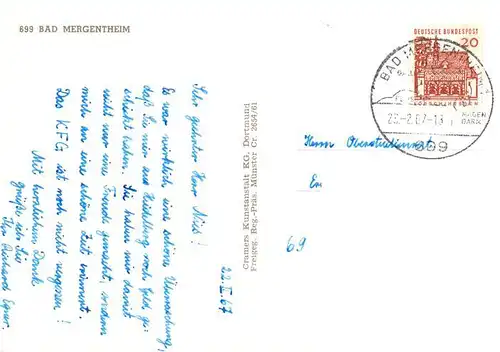 699 BAD MERGENTHEIM
DEUTSCHE BUNDESPOST
20
BAD MERGENTHEIM
23.-2.67-13
699
22.II.67
Sehr geehrter Herr
Es war wirklich eine schöne Überraschung,
daß Sie mir aus Heidelberg noch Geld ge-
schickt haben. Sie haben mir damit
nicht nur eine Freude gemacht, sondern
mich an eine schöne Zeit erinnert.
Das K.F.G. ist noch nicht vergessen!
Mit herzlichem Dank
grüße ich Sie
Ihr Richard
Cramers Kunstanstalt KG, Dortmund
Freigeg. Reg.-Präs. Münster Cr. 2654/61
Herrn
69